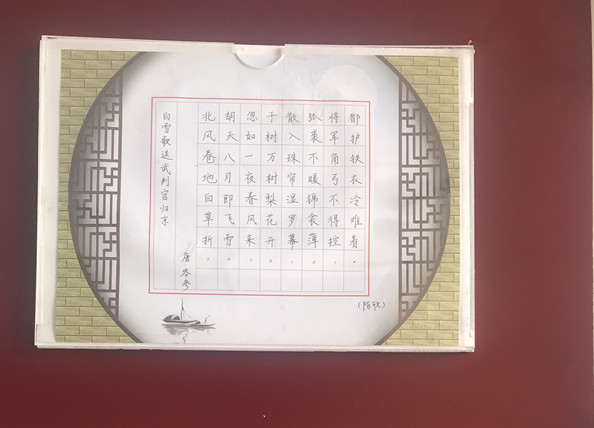 白雪歌送武判官归京
唐 岑参
北风卷地白草折。
胡天八月即飞雪。
忽如一夜春风来。
千树万树梨花开。
散入珠帘湿罗幕。
狐裘不暖锦衾薄。
将军角弓不得控。
都护铁衣冷难着。